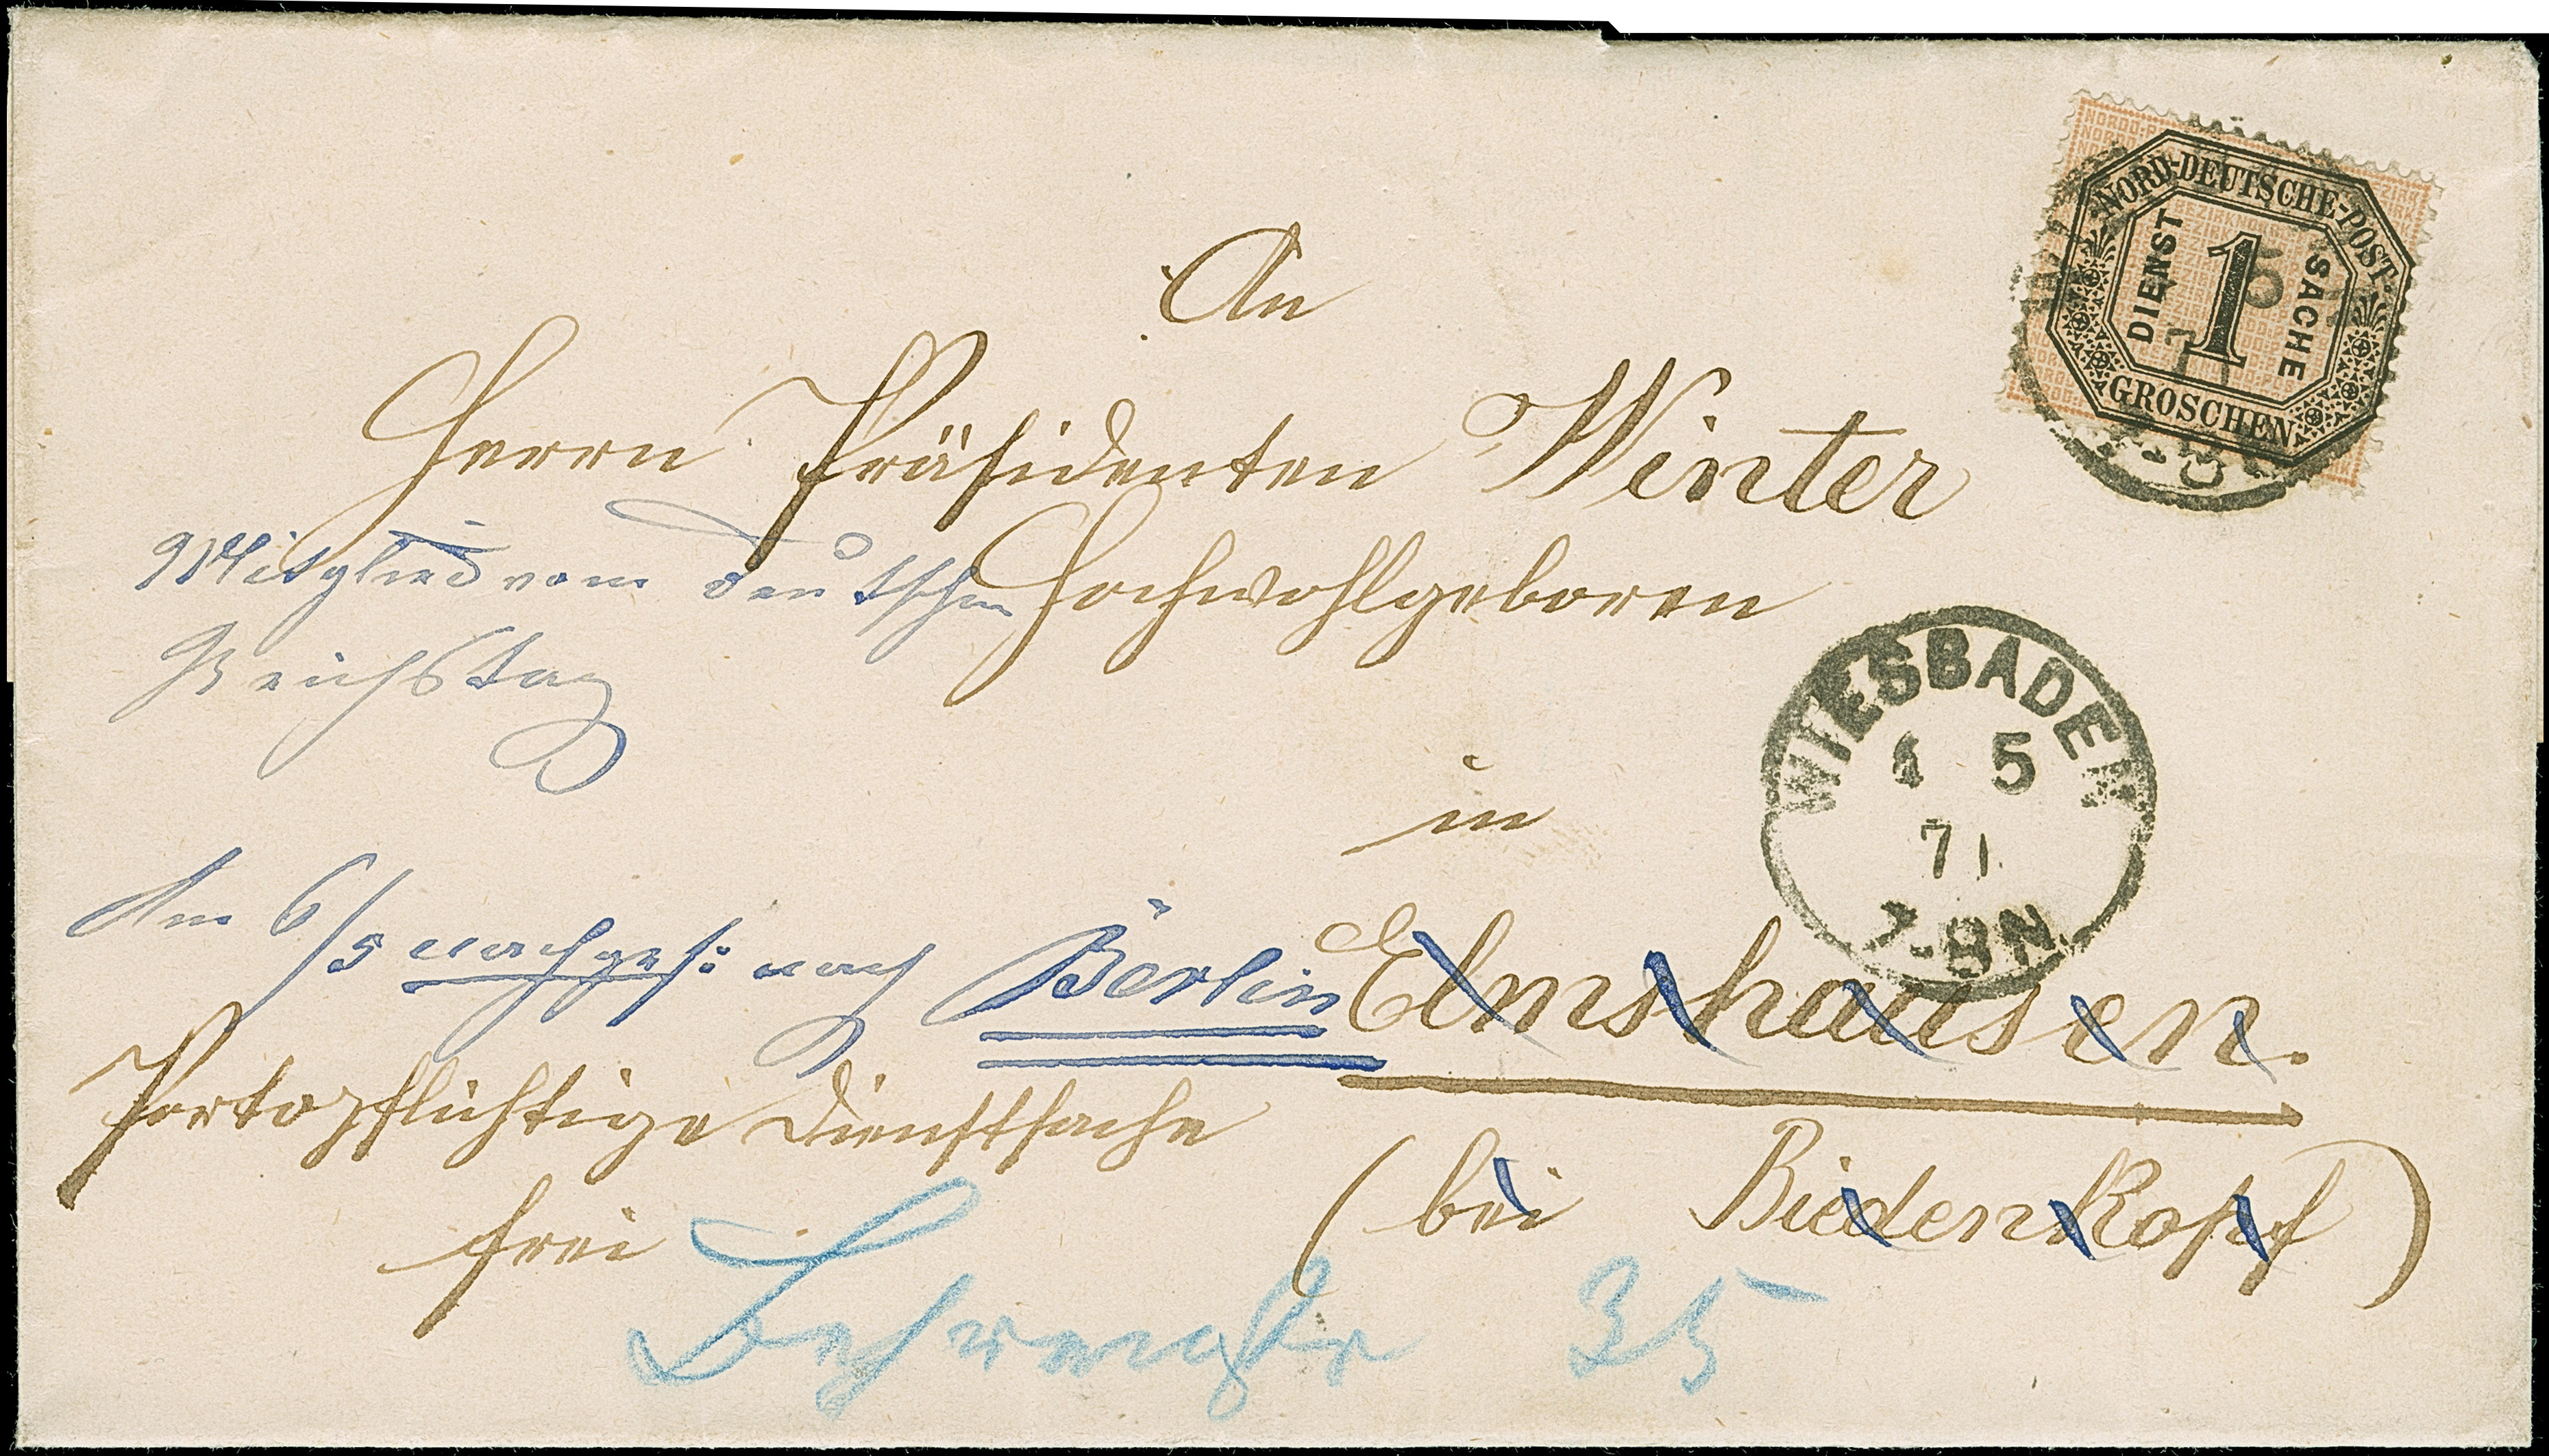 An
Herrn Präsidenten Winter
Hochwohlgeboren
in
Elmshausen.
(bei Biedenkopf)
Mitglied vom deutschen
Reichstag
Am 6/5 nachges: nach Berlin
Portopflichtige Dienstsache
frei
Behrenstr 35
NORD-DEUTSCHE-POST
DIENST SACHE
1
GROSCHEN
WIESBADEN
1 5
71
7-8N